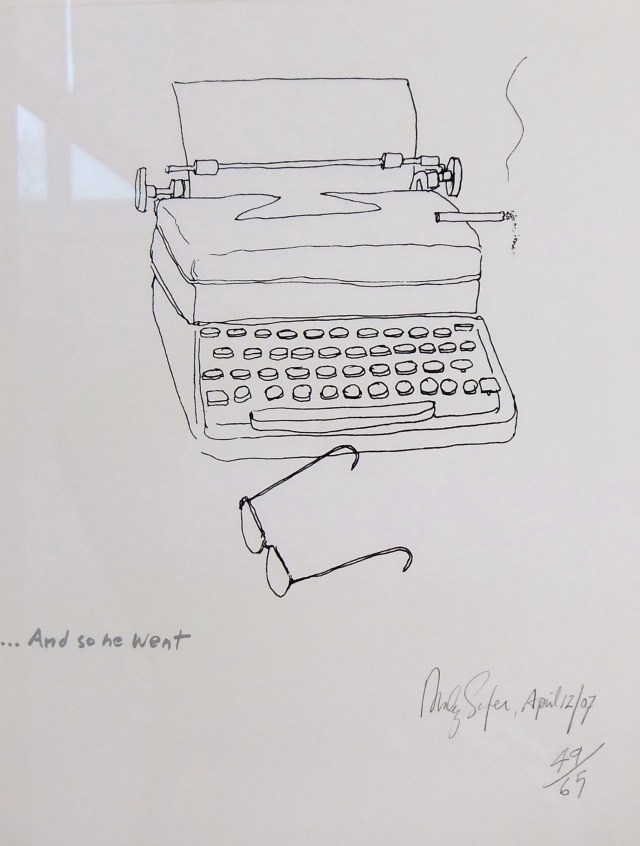 ... And so he went
Morley Safer, April 12/07
49/65